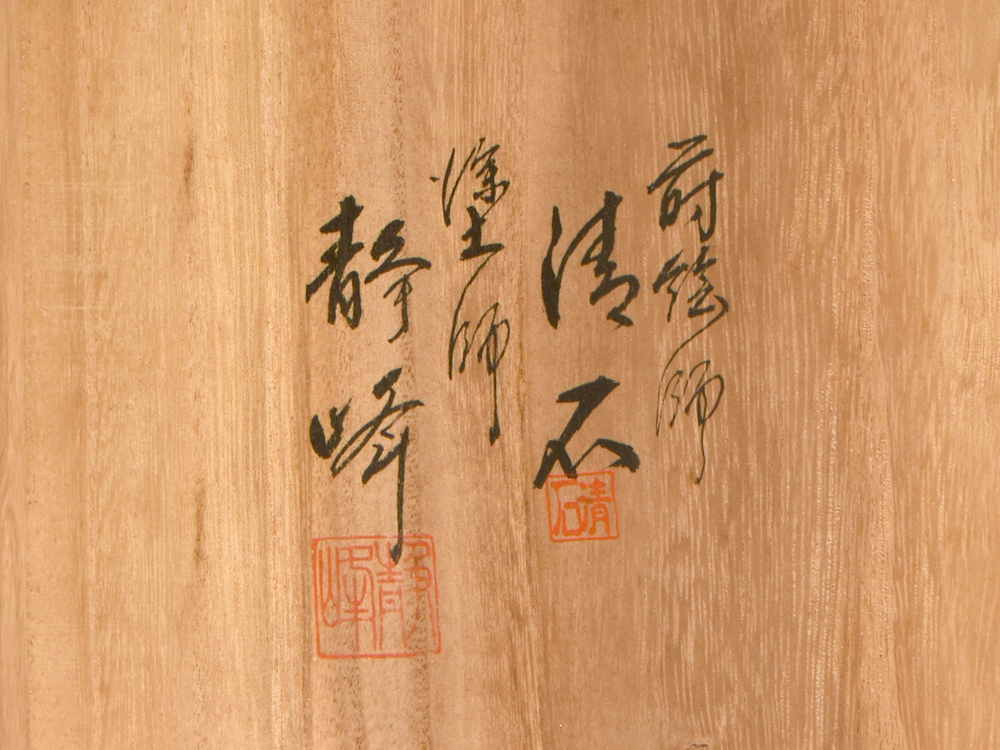 蒔絵師
清石
清石
塗師
静峰
静峰